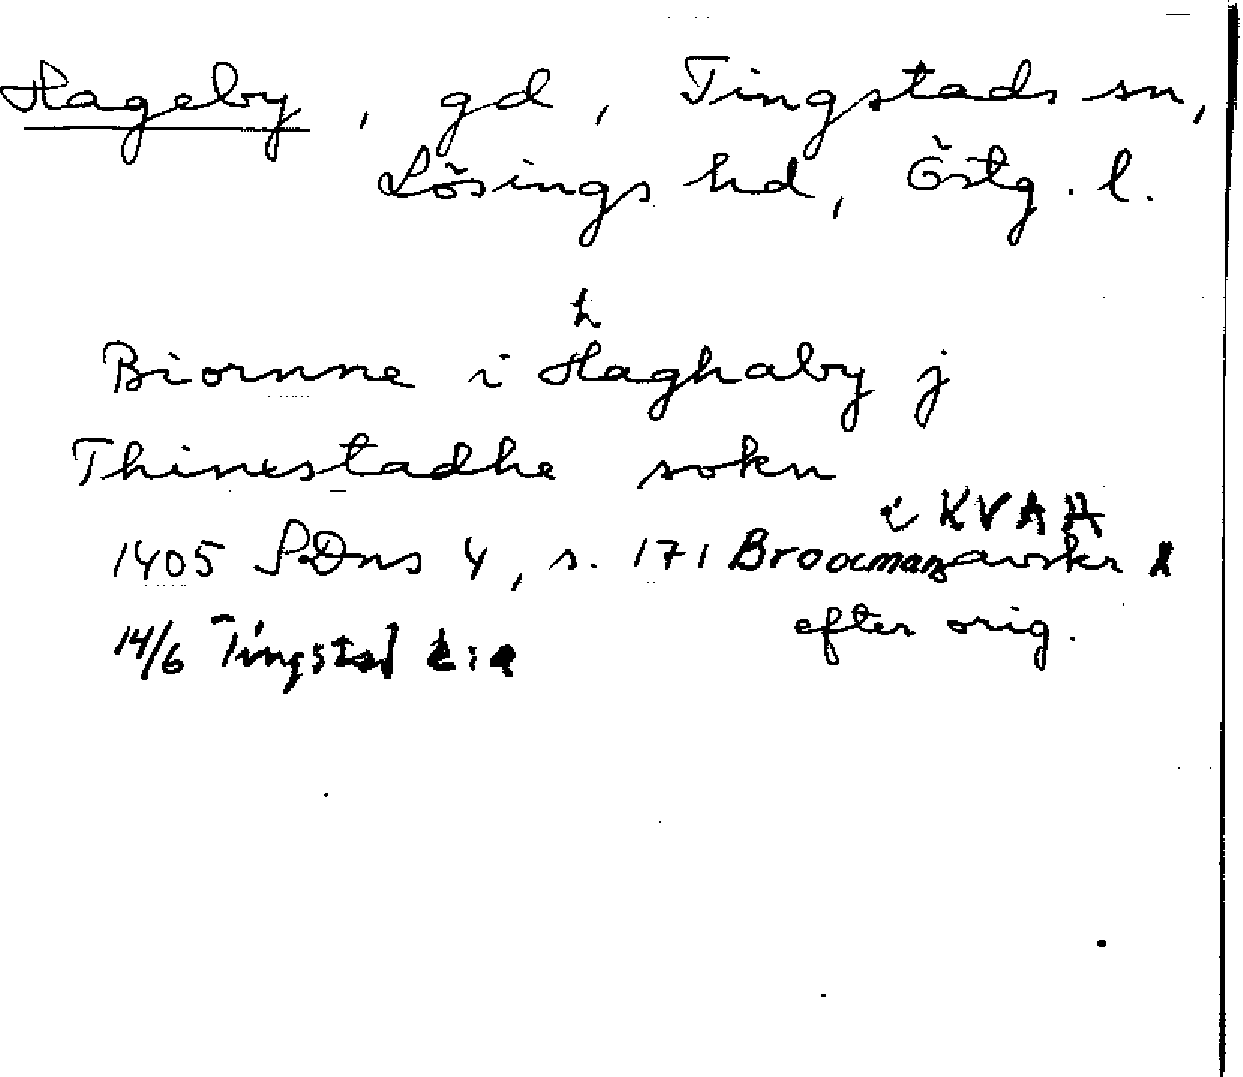 Hageby, gd, Tingstads sn,
Lösings hd, Östg. l.
h
Biornne i Haghaby j
Thinestadhe sokn
i KVAH
1405 SDns 4, s. 171 Broocman avskr
efter orig.
14/6 Tingstad